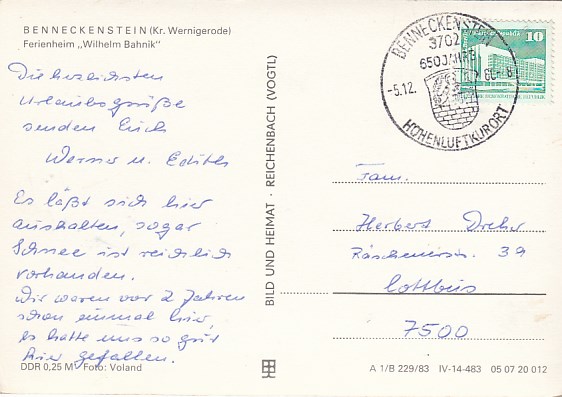 BENNECKENSTEIN (Kr. Wernigerode)
Ferienheim „Wilhelm Bahnik"
Die herzlichsten
Urlaubsgrüße
senden Euch
Werner u. Edith
Es läßt sich hier
aushalten, sogar
Schnee ist reichlich
vorhanden.
Wir waren vor 2 Jahren
schon einmal hier,
es hatte uns so gut
hier gefallen.
DDR 0,25 M Foto: Voland
BILD UND HEIMAT · REICHENBACH (VOGTL)
BENNECKENSTEIN
3702
650 JAHRE
-5.12.
HÖHENLUFTKURORT
10
Fam.
Herbert Dreher
39
Cottbus
7500
A 1/B 229/83 IV-14-483 05 07 20 012